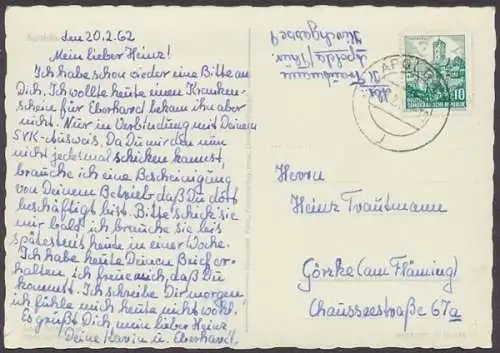 Apolda, den 20.2.62
Mein lieber Heinz!
Ich habe schon wieder eine Bitte an
Dich. Ich wollte heute einen Kranken-
schein für Eberhard bekam ihn aber
nicht. Nur in Verbindung mit Deinem
SVK-Ausweis. Da Du mir den nun
nicht jedesmal schicken kannst,
brauche ich eine Bescheinigung
von Deinem Betrieb daß Du dort
beschäftigt bist. Bitte schick sie
mir bald, ich brauche sie bis
spätestens heute in einer Woche.
Ich habe heute Deinen Brief er-
halten, ich freue mich, daß Du
kommst. Ich schreibe Dir morgen
ich fühle mich heute nicht wohl.
Es grüßt Dich, mein lieber Heinz
Deine Karin u. Eberhard!
Abs.:
K. Trautmann
Apolda/Thür
Kirchgasse 9
APOLDA
10
DEUTSCHE
DEMOKRATISCHE REPUBLIK
Herrn
Heinz Trautmann
Görzke (am Fläming)
Chausseestraße 67a